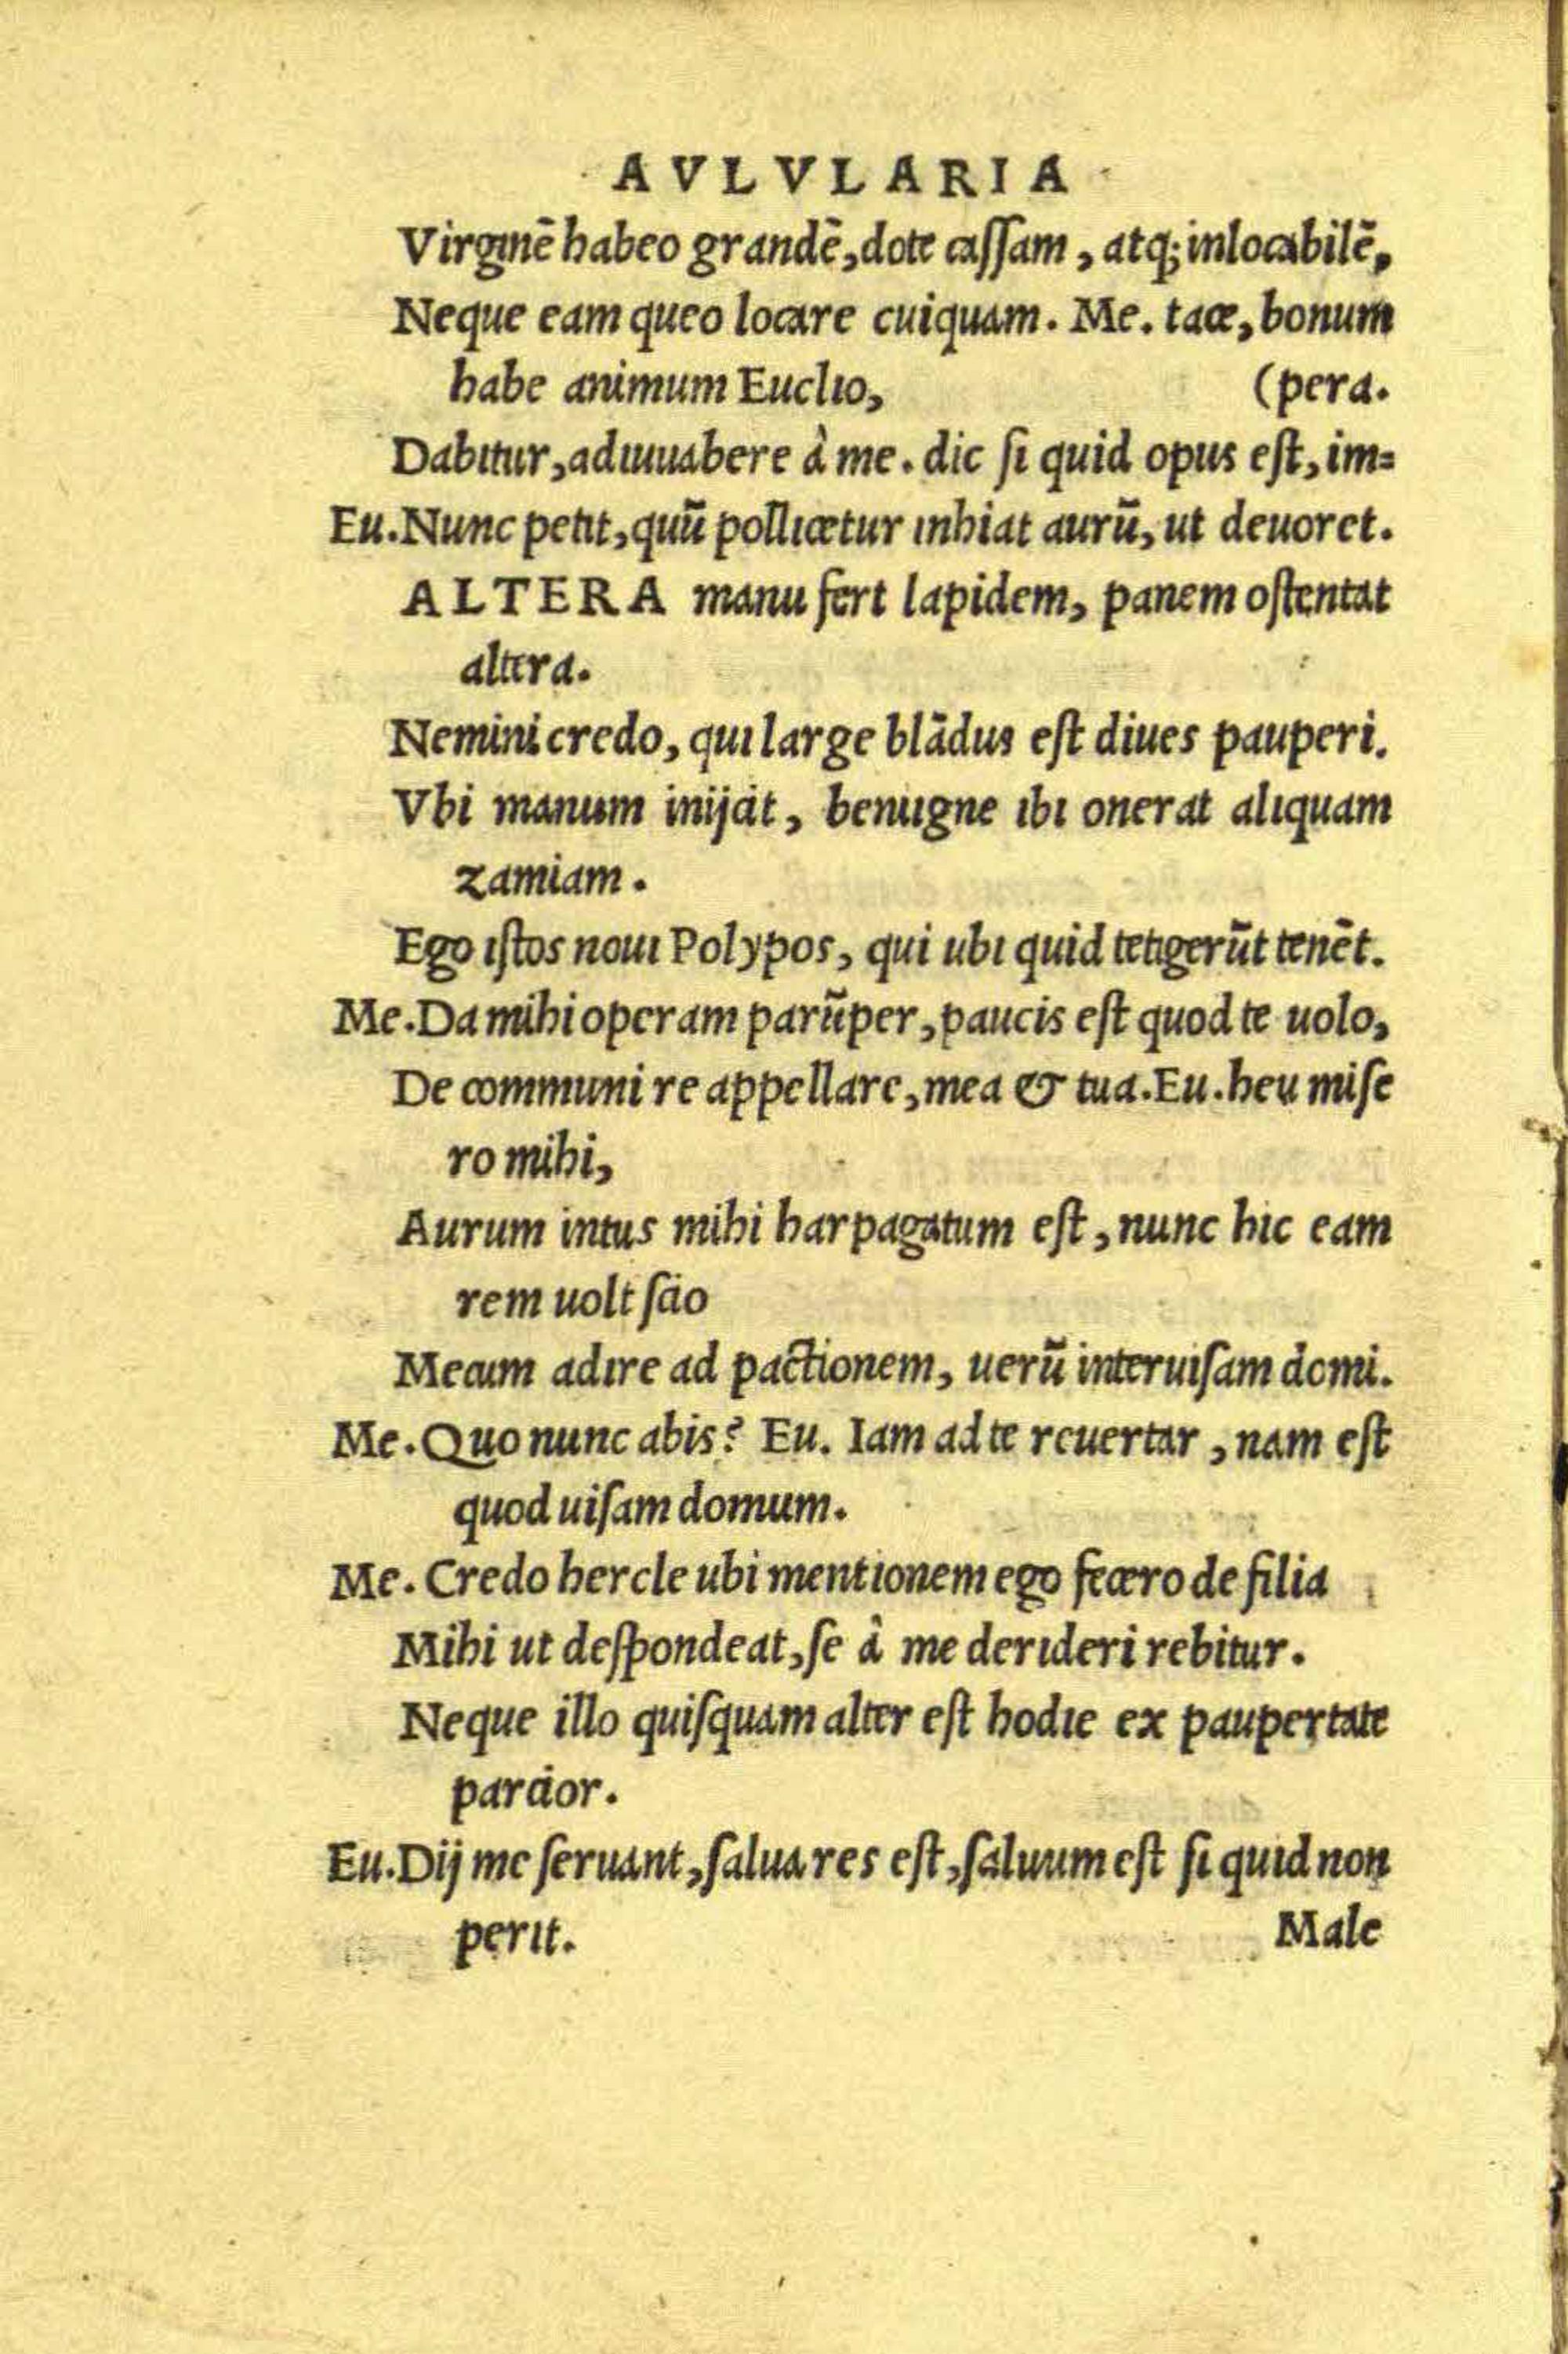 AVLVLARIA
Virginē habeo grandē, dote caſſam, atq; inlocabilē,
Neque eam queo locare cuiquam. Me. tace, bonum
habe animum Euclio, (pera.
Dabitur, adiuuabere à me. dic ſi quid opus eſt, im=
Eu. Nunc petit, quū pollicetur inhiat aurū, ut deuoret.
ALTERA manu fert lapidem, panem oſtentat
altera.
Nemini credo, qui large blādus eſt diues pauperi.
Vbi manum inijcit, benigne ibi onerat aliquam
zamiam.
Ego iſtos noui Polypos, qui ubi quid tetigerūt tenēt.
Me. Da mihi operam parūper, paucis eſt quod te uolo,
De communi re appellare, mea & tua. Eu. heu miſe
ro mihi,
Aurum intus mihi harpagatum eſt, nunc hic eam
rem uolt ſcio
Mecum adire ad pactionem, uerū interuiſam domi.
Me. Quo nunc abis? Eu. Iam ad te reuertar, nam eſt
quod uiſam domum.
Me. Credo hercle ubi mentionem ego fecero de filia
Mihi ut deſpondeat, ſe à me derideri rebitur.
Neque illo quiſquam alter eſt hodie ex paupertate
parcior.
Eu. Dij me ſeruant, ſalua res eſt, ſaluum eſt ſi quid non
perit. Male